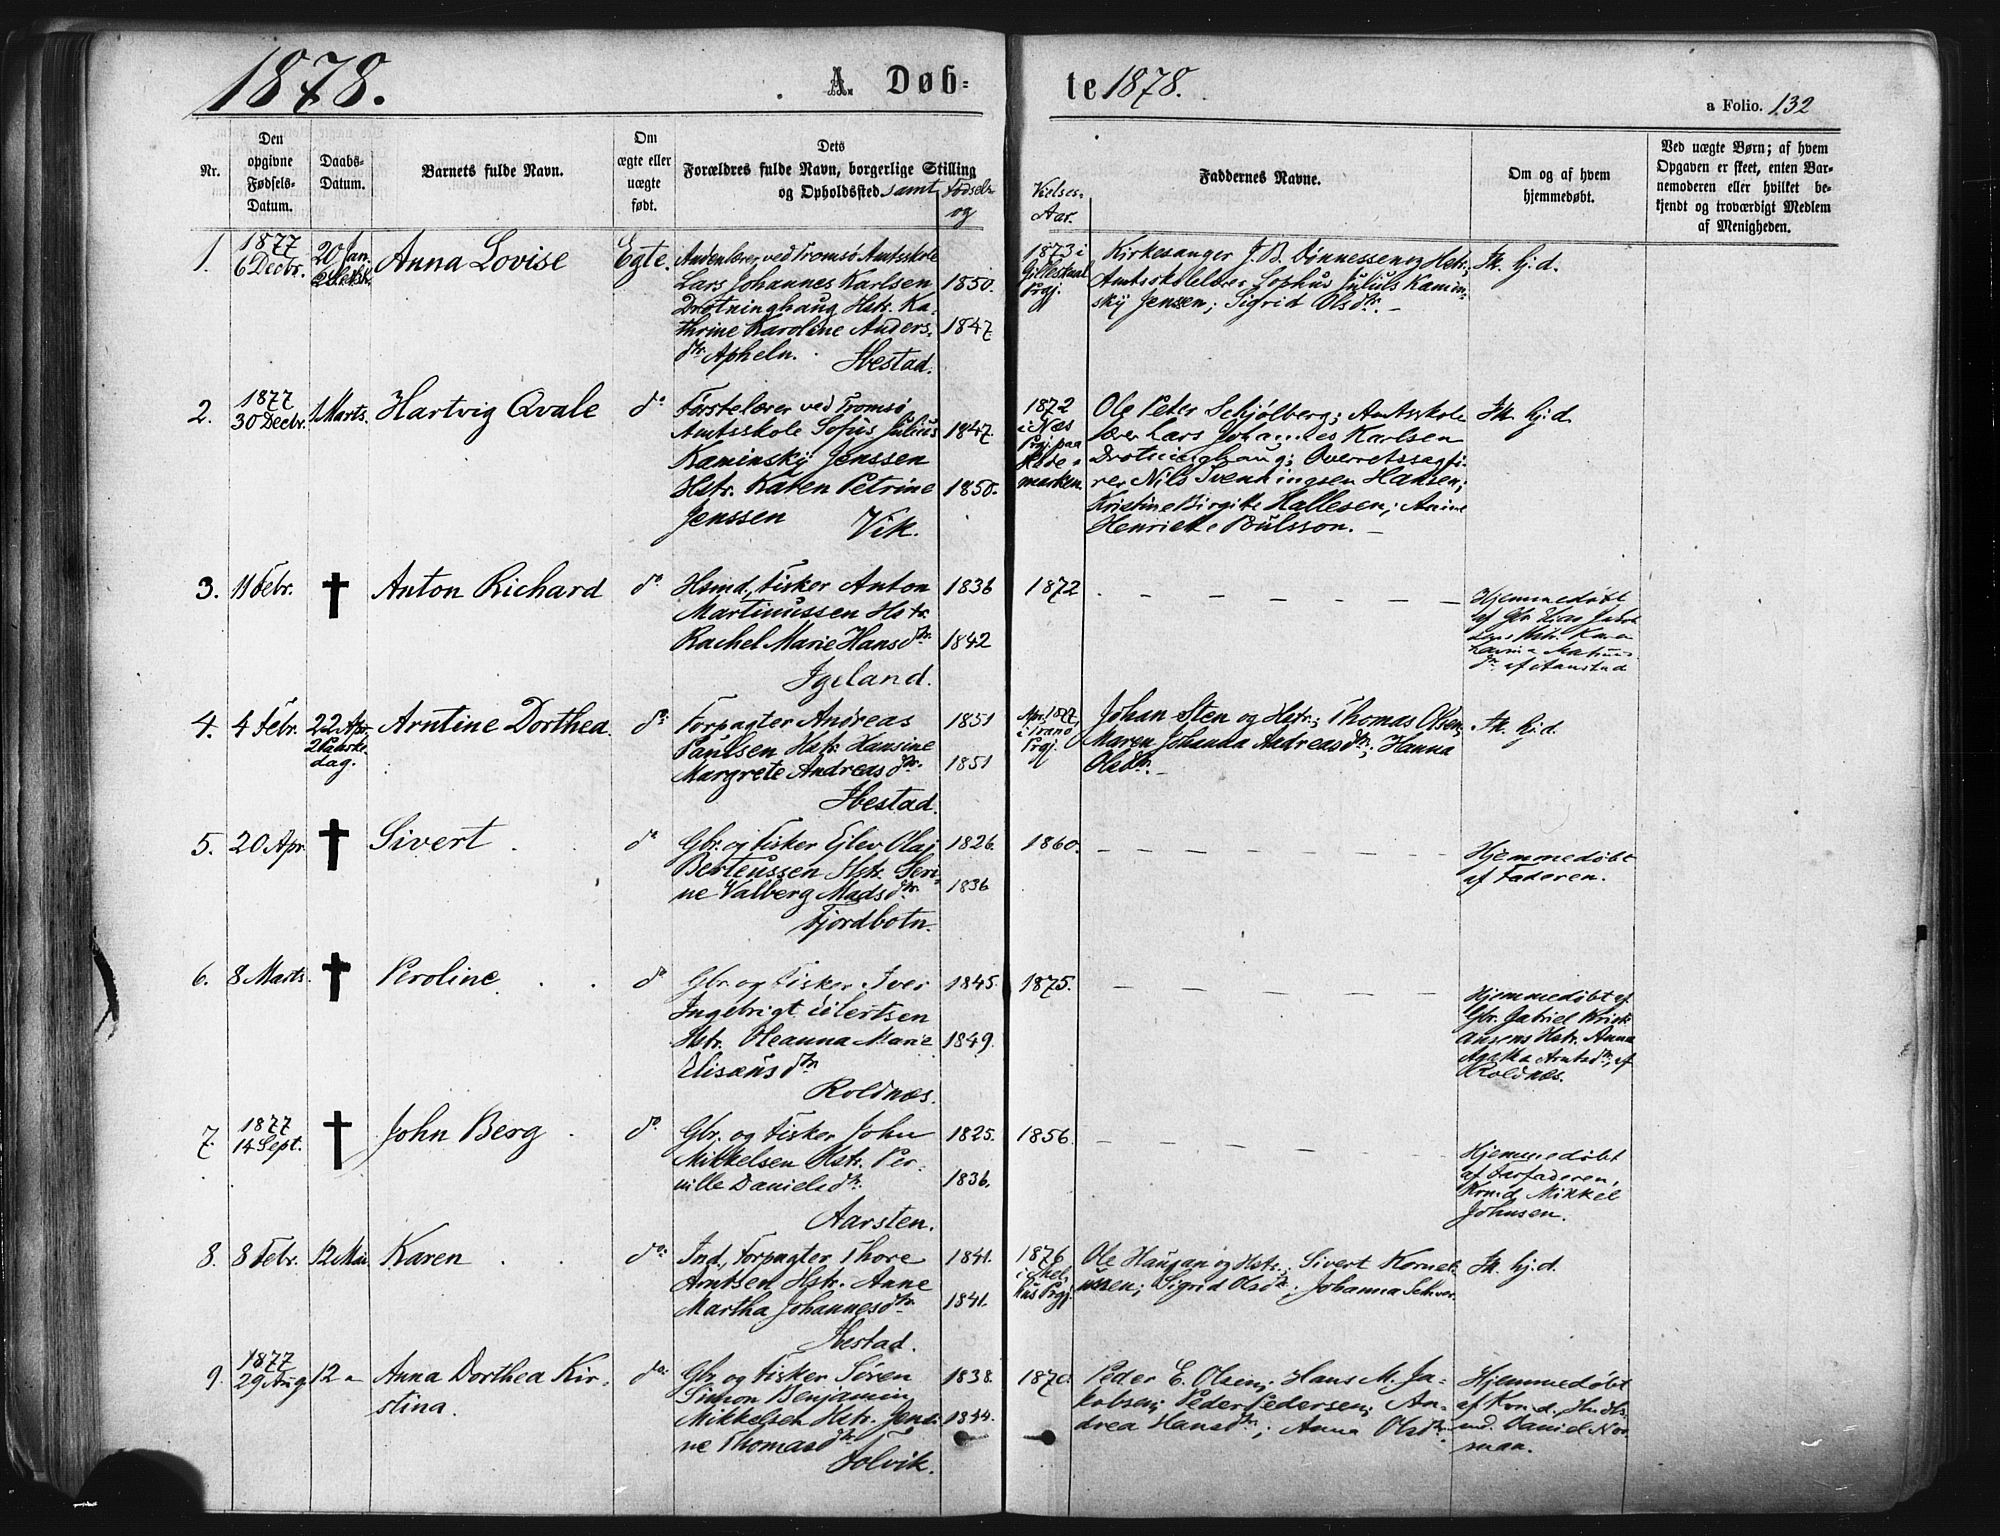 1878.
A. Døb-
te 1878.
a Folio. 132
Nr.
Den opgivne Fødsels-Datum.
Daabs-Datum.
Barnets fulde Navn.
Om ægte eller uægte født.
Dets
Forældres fulde Navn, borgerlige Stilling
og Opholdssted. samt Fødsels
og
Vielses-
Aar.
Faddernes Navne.
Om og af hvem
hjemmedøbt.
Ved uægte Børn; af hvem
Opgaven er skeet, enten Bar-
nemoderen eller hvilket be-
kjendt og troværdigt Medlem
af Menigheden.
1.
1877
6 Decbr.
20 Jan.
Anna Lovise
Egte.
Andenlærer ved Tromsø Amtsskole
Lars Johannes Karlsen
Drotninghaug Hstr. Ka-
thrine Karoline Anders-
dtr Apheln.
Ibestad.
1850.
1847
1873 i
Prgj.
Kirkesanger J. B. Dinnessen og Hstr;
Amtsskolelærer Sophus Julius Kamin-
sky Jensen; Sigrid Olsdtr. –
Ik. hj. d.
2.
1877
30 Decbr.
1 Marts.
Hartvig Qvale
do
Førstelærer ved Tromsø
Amtsskole Sofus Julius
Kaminsky Jenssen
Hstr. Karen Petrine
Jenssen
Vik.
1847.
1850.
1872
i Næs
Prgj. paa
Hede-
marken.
Ole Peter Schjølberg; Amtsskole
lærer Lars Johannes Karlsen
Drotninghaug; Overretssagfø-
rer Nils Svenningsen Hansen;
Kristine Birgitte Hallesen; Anine
Henriette Poulsson. –
Ik. hj. d.
3.
11 Febr.
✝
Anton Richard
do
Hsmd., Fisker Anton
Martinussen Hstr
Rachel Marie Hansdtr.
Igeland.
1836
1842
1872
Hjemmedøbt
af Gbr. Hstr. Karen
dtr af Aanstad
4.
4 Febr.
22 Apr.
2 Paaske-
dag.
Arntine Dorthea.
do
Forpagter Andreas
Paulsen Hstr. Hansine
Margrete Andreasdtr.
Ibestad.
1851
1851
Apr. 1877,
i Tranø
Prgj.
Johan Sten og Hstr; Thomas Olsen;
Maren Johanna Andreasdtr; Hanna
Olsdtr. –
Ik. hj. d.
5.
20 Apr.
✝
Sivert
do
Gbr. og Fisker Ejlev Olaj
Berteussen Hstr. Seri-
ne Valberg Madsdtr.
Fjordbotn.
1826.
1836
1860.
Hjemmedøbt
af Faderen.
6.
8 Marts.
✝
Peroline
do
Gbr. og Fisker Iver
Ingebrigt Eilertsen
Hstr. Oleanna Marie
Elisæusdtr
Roldnæs.
1845.
1849.
1875.
Hjemmedøbt af
Gbr. Gabriel Kristi-
ansens Hstr. Anna
Agatha Arntsdtr, af
Roldnæs.
7
1877
14 Sept.
✝
John Berg
do
Gbr. og Fisker John
Mikkelsen Hstr. Per-
nille Danielsdtr.
Aarsten.
1825.
1836.
1856.
Hjemmedøbt
af Farfaderen,
Kmd. Mikkel
Johnsen.
8.
8 Febr.
12 Mai
Karen
do:
Ind., Forpagter Thore
Arntsen Hstr. Anne
Martha Johannesdtr.
Ibestad.
1841.
1841.
1876
Prgj.
Ole Haugan og Hstr; Sivert Kornel-
iussen; Sigrid Olsdtr; Johanna
Ik. hj. d.
9.
1877
29 Aug
12 "
Anna Dorthea Kir-
stina.
do:
Gbr. og Fisker Søren
Simon Benjamin
Mikkelsen Hstr. Jensi-
ne Thomasdtr
Folvik.
1838.
1844.
1870.
Peder E. Olsen; Hans M. Ja-
kobsen; Peder Pedersen; An-
drea Hansdtr; Anna Olsdtr.
Hjemmedøbt
af Kmd.
Daniel Nor-
man.